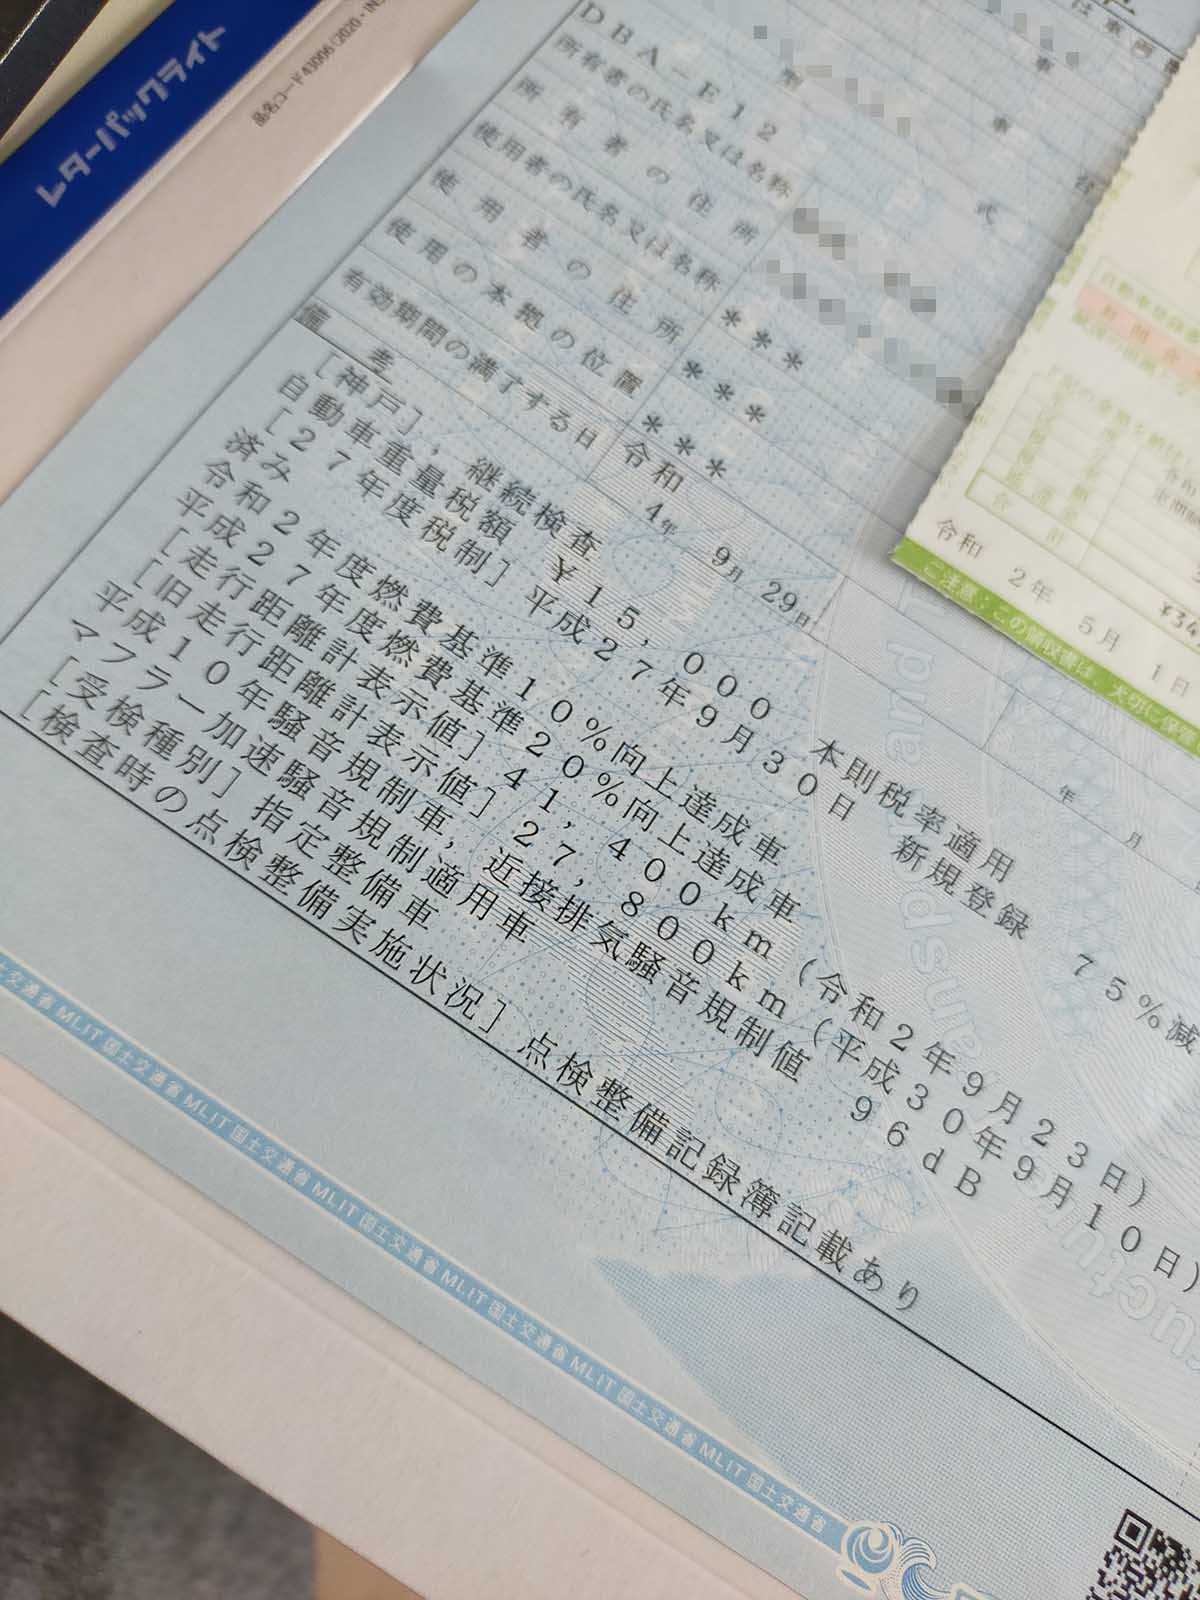 レターパックライト
品名コード43006(2020・IN
DBA-E12
所有者の氏名又は名称
所有者の住所
使用者の氏名又は名称 ＊＊＊
使用者の住所 ＊＊＊
使用の本拠の位置 ＊＊＊
有効期間の満了する日 令和 4年 9月 29日
備考
[神戸]，継続検査
自動車重量税額 ￥15，000 本則税率適用
[27年度税制] 平成27年9月30日 新規登録 75％減
済み
令和2年度燃費基準10％向上達成車
平成27年度燃費基準20％向上達成車
[走行距離計表示値] 41，400km (令和2年9月23日)
[旧走行距離計表示値] 27，800km (平成30年9月10日)
平成10年騒音規制車，近接排気騒音規制値 96dB
マフラー加速騒音規制適用車
[受検種別] 指定整備車
[検査時の点検整備実施状況] 点検整備記録簿記載あり
年 月
合計
¥34
令和 2年 5月 1日
ご注意：この領収書は、大切に保
国土交通省 MLIT 国土交通省 MLIT 国土交通省 MLIT 国土交通省 MLIT 国土交通省 MLIT 国土交通省 MLIT 国土交通省 MLIT 国土交通省